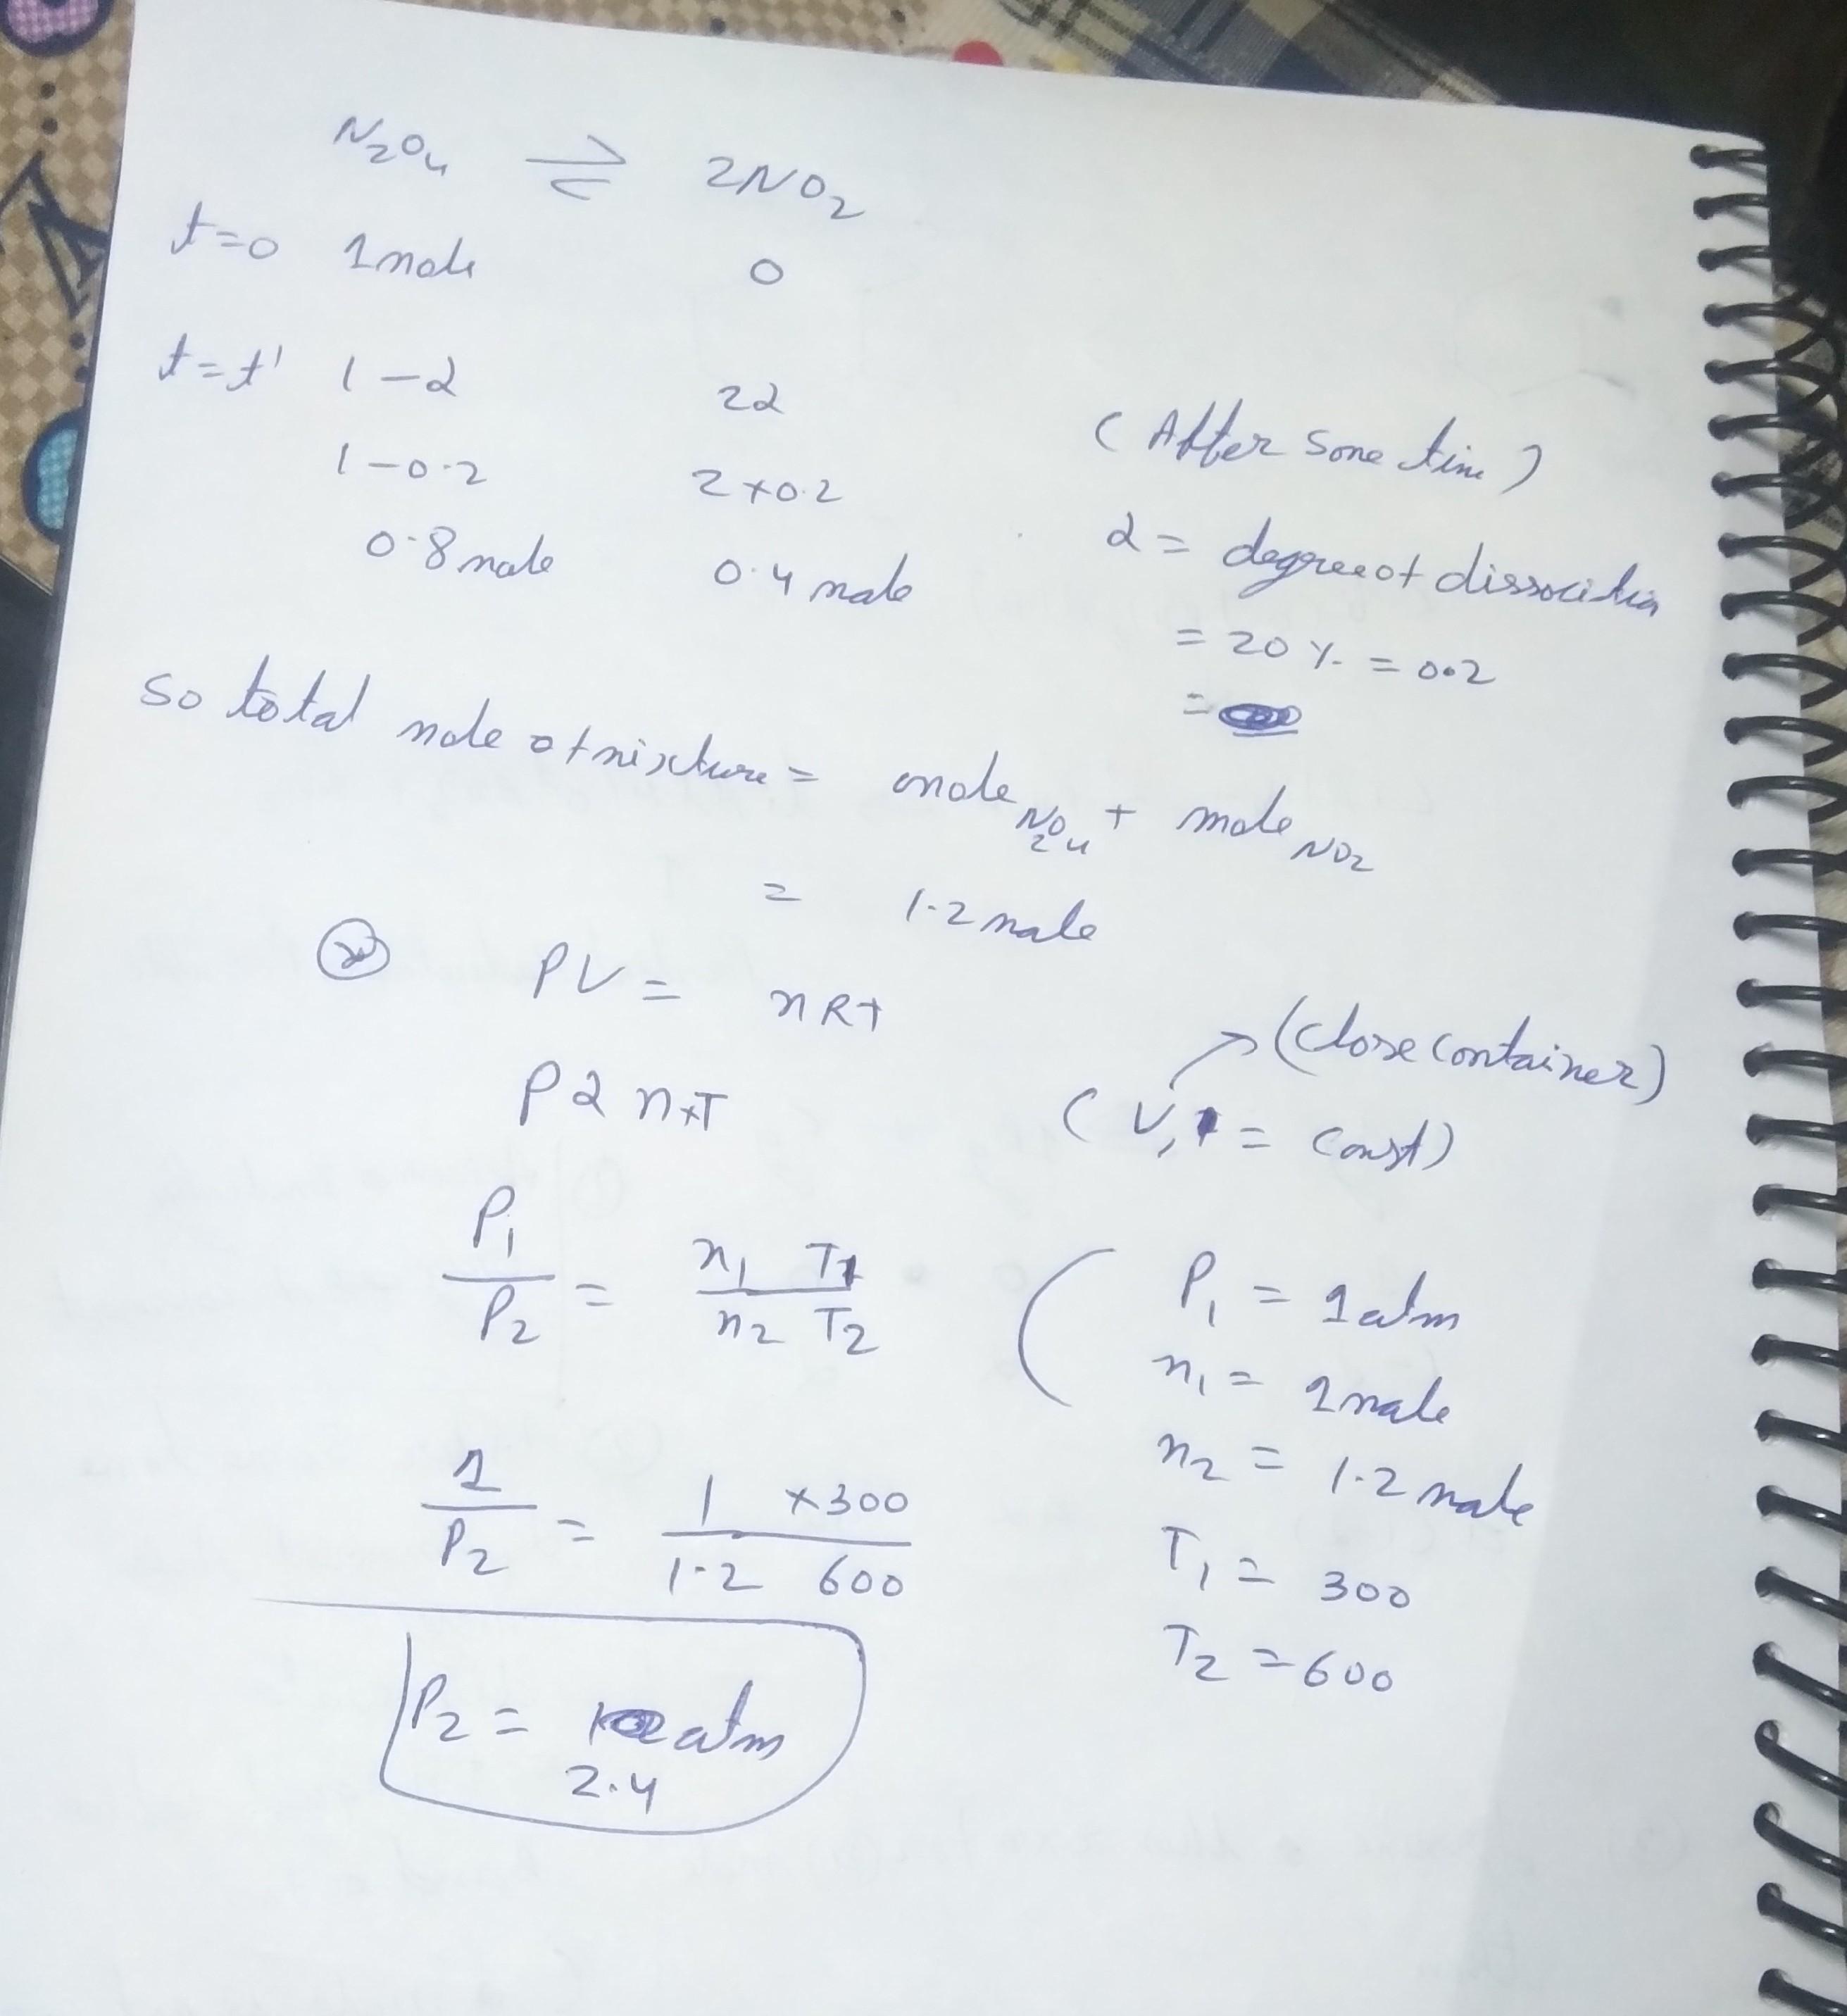 N₂O₄ ⇌ 2NO₂
t=0 1 mole 0
t=t' 1-α 2α
(After some time)
1-0.2 2×0.2
0.8 mole 0.4 mole
α = degree of dissociation
= 20 % = 0.2
=
So total mole of mixture = mole N₂O₄ + mole NO₂
= 1.2 mole
PV = nRT
(Close container)
P α n×T
(V, = const)
P₁/P₂ = n₁ T₁/n₂ T₂
P₁ = 1 atm
n₁ = 1 mole
1/P₂ = 1 ×300/1.2 600
n₂ = 1.2 mole
T₁ = 300
T₂ = 600
P₂ = atm
2.4